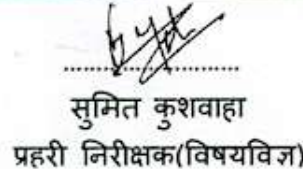 सुमित कुशवाहा
प्रहरी निरीक्षक(विषयविज्ञ)